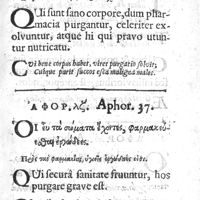 QUi sunt sano corpore, dum phar-
macia purgantur, celeriter ex-
olvuntur, atque hi qui pravo utun-
tur nutricatu.
Cui bene corpus habet, vires purgatio solvit:
Cuique parit succos esca maligna malos.
ΑΦΟΡ. λζ. Aphor. 37.
Οἱ εὖ τὰ σώματα ἔχοντες, φαρμακεύ-
εσθαι ἐργώδεες.
QUi secura sanitate fruuntur, hos
purgare grave est.